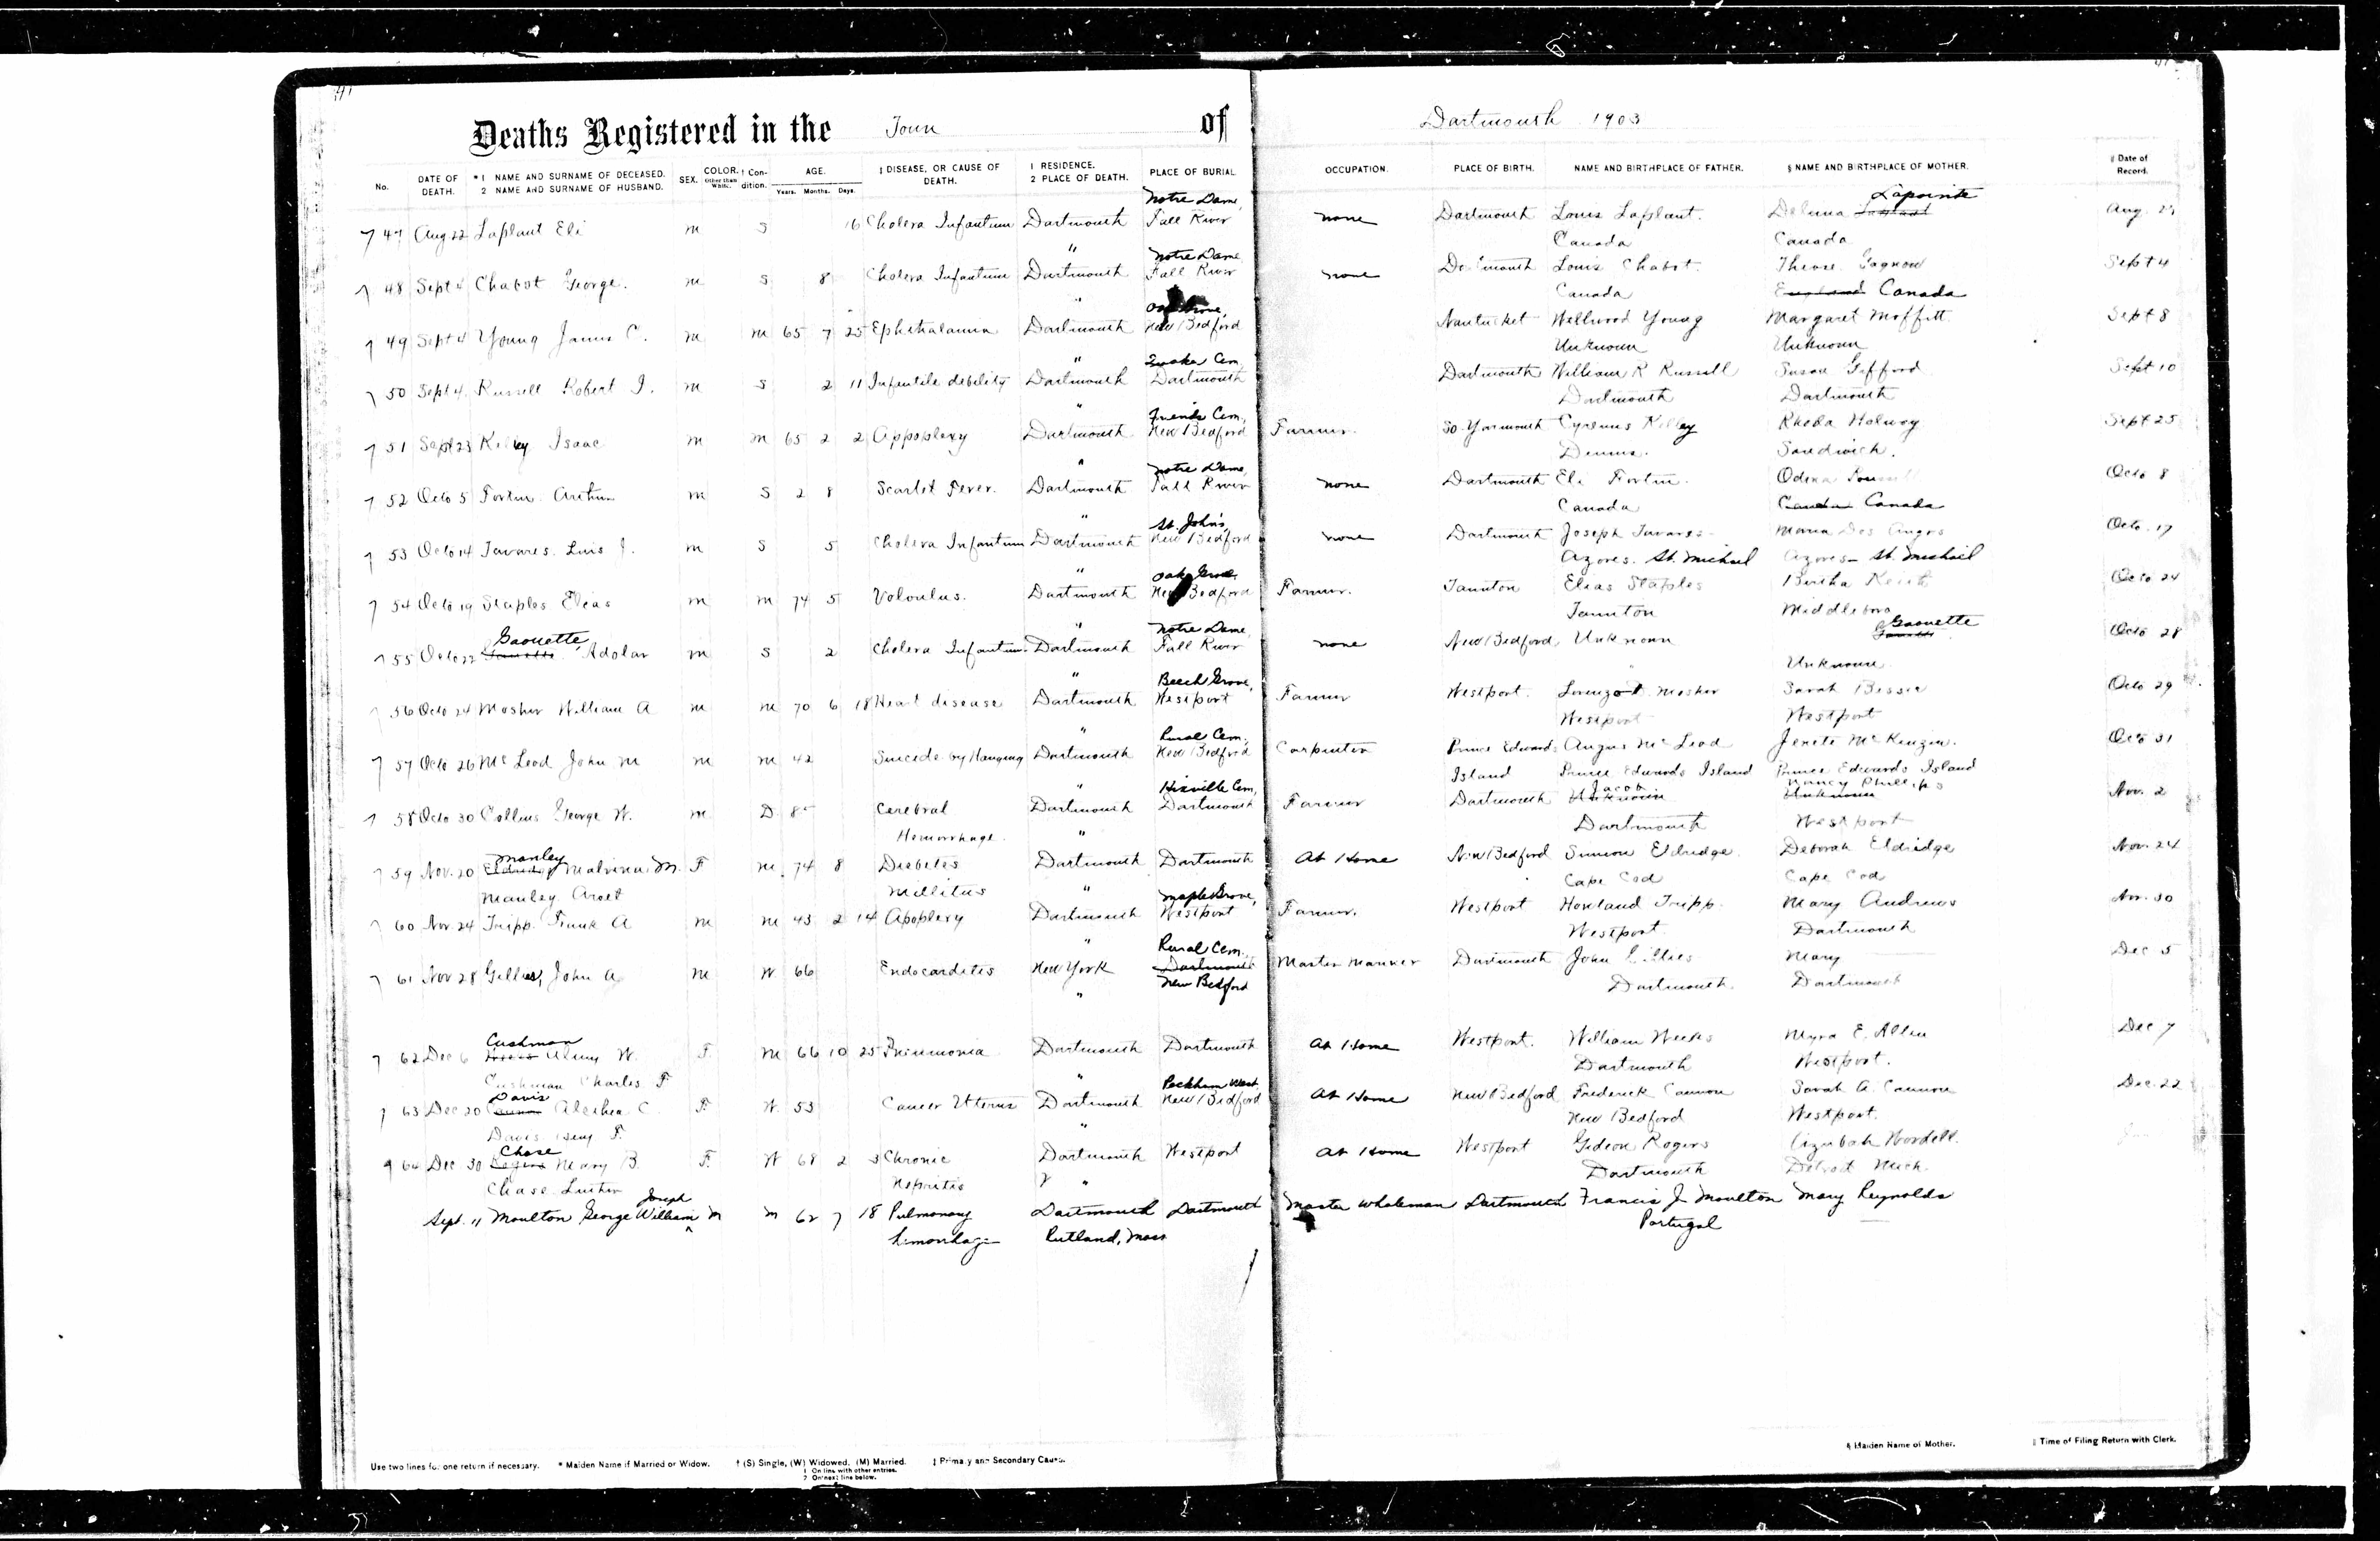 Deaths Registered in the Town of Dartmouth 1903
No. DATE OF DEATH. * 1 NAME AND SURNAME OF DECEASED. 2 NAME AND SURNAME OF HUSBAND. SEX. COLOR. Other than White. † Condition. AGE. Years. Months. Days. ‡ DISEASE, OR CAUSE OF DEATH. 1 RESIDENCE. 2 PLACE OF DEATH. PLACE OF BURIAL OCCUPATION. PLACE OF BIRTH. NAME AND BIRTHPLACE OF FATHER. § NAME AND BIRTHPLACE OF MOTHER. ‖ Date of Record.
Notre Dame, Lapointe
47 Aug 22 Laplant Eli m S 16 Cholera Infantum Dartmouth Fall River none Dartmouth Louis Laplant. Delima Aug.
" Notre Dame Canada Canada
48 Sept 4 Chabot George. m S 8 Cholera Infantum Dartmouth Fall River none Dartmouth Louis Chabot. Gagnon Sept 4
" Oak Grove, Canada England Canada
49 Sept 4 Young James C. m m 65 7 25 Dartmouth New Bedford Nantucket Wellwood Young Margaret Moffitt Sept 8
" Quaker Cem. Unknown Unknown
50 Sept 4. Russell Robert J. m S 2 11 Infantile debility Dartmouth Dartmouth Dartmouth William R Russell Susan Gifford Sept 10
" Friends Cem, Dartmouth Dartmouth
51 Sept 23 Kelley Isaac m m 65 2 2 Appoplexy Dartmouth New Bedford Farmer. So. Yarmouth Cyrenus Kelley Rhoda Holway Sept 25
" Notre Dame, Dennis. Sandwich.
52 Octo 5 Fortin Arthur m S 2 8 Scarlet Fever. Dartmouth Fall River none Dartmouth Eli Fortin. Odina Octo 8
" St. John's, Canada Canada Canada
53 Octo 14 Tavares. Luis J. m S 5 Cholera Infantum Dartmouth New Bedford none Dartmouth Joseph Tavares Maria Dos Anges Octo. 17
" Oak Grove, Azores. St. Michael Azores - St. Michael
54 Octo 19 Staples Elias m m 74 5 Volvulus. Dartmouth New Bedford Farmer. Taunton Elias Staples Bertha Keith Octo 24
Gaouette, " Notre Dame, Taunton Middleboro Gaouette
55 Octo 22 Adolar m S 2 Cholera Infantum Dartmouth Fall River none New Bedford Unknown Octo 28
" Beech Grove, " Unknown
56 Octo 24 Mosher William A m m 70 6 18 Heart disease Dartmouth Westport Farmer Westport. Lorenzo Mosher Sarah Bessie Octo 29
" Rural Cem. Westport Westport
57 Octo 26 McLeod John M m m 42 Suicide by Hanging Dartmouth New Bedford Carpenter Prince Edwards Angus McLeod Jenete McKenzie. Octo 31
" Hixville Cem, Island Prince Edwards Island Prince Edwards Island
Jacob Nancy Phillips
58 Octo 30 Collins George W. m D Cerebral Dartmouth Dartmouth Farmer Dartmouth Unknown Unknown Nov. 2
Hemorrhage. " Dartmouth Westport
Manley
59 Nov. 20 Eldridge Malvina M. F m 74 8 Diabetes Dartmouth Dartmouth At Home New Bedford Simeon Eldridge. Deborah Eldridge Nov. 24
Manley Aroet Millitus " Maple Grove, Cape Cod Cape Cod
60 Nov. 24 Tripp. Frank A m m 43 2 14 Apoplexy Dartmouth Westport Farmer. Westport Howland Tripp. Mary Andrews Nov. 30
" Rural Cem. Westport. Dartmouth
61 Nov 28 Gillies, John A m W 66 Endocarditis New York Dartmouth Master Mariner Dartmouth John Gillies Mary Dec 5
" New Bedford Dartmouth. Dartmouth
Cushman
62 Dec 6 Almy W. F. m 66 10 25 Pneumonia Dartmouth Dartmouth At Home Westport. William Weeks Myra E. Allen Dec 7
Cushman Charles F " Peckham West, Dartmouth Westport.
Davis
63 Dec 20 Cannon Alethea C. F. W. 53 Cancer Uterus Dartmouth New Bedford At Home New Bedford Frederick Cannon Sarah A. Cannon Dec. 22
Davis. Benj F. " New Bedford Westport.
Chase
64 Dec 30 Rogers Mary B. F. W 68 2 3 Chronic Dartmouth Westport At Home Westport Gideon Rogers Azubah Wordell.
Chase. Luther Nephritis " Dartmouth Detroit Mich.
Joseph
Sept. 11 Moulton George William m m 62 7 18 Pulmonary Dartmouth Dartmouth Master Whaleman Dartmouth Francis J. Moulton Mary Reynolds
hemorrhage Rutland, Mass Portugal
§ Maiden Name of Mother. ‖ Time of Filing Return with Clerk.
Use two lines for one return if necessary. * Maiden Name if Married or Widow. † (S) Single, (W) Widowed, (M) Married. ‡ Primary and Secondary Cause.
1 On line with other entries.
2 On next line below.